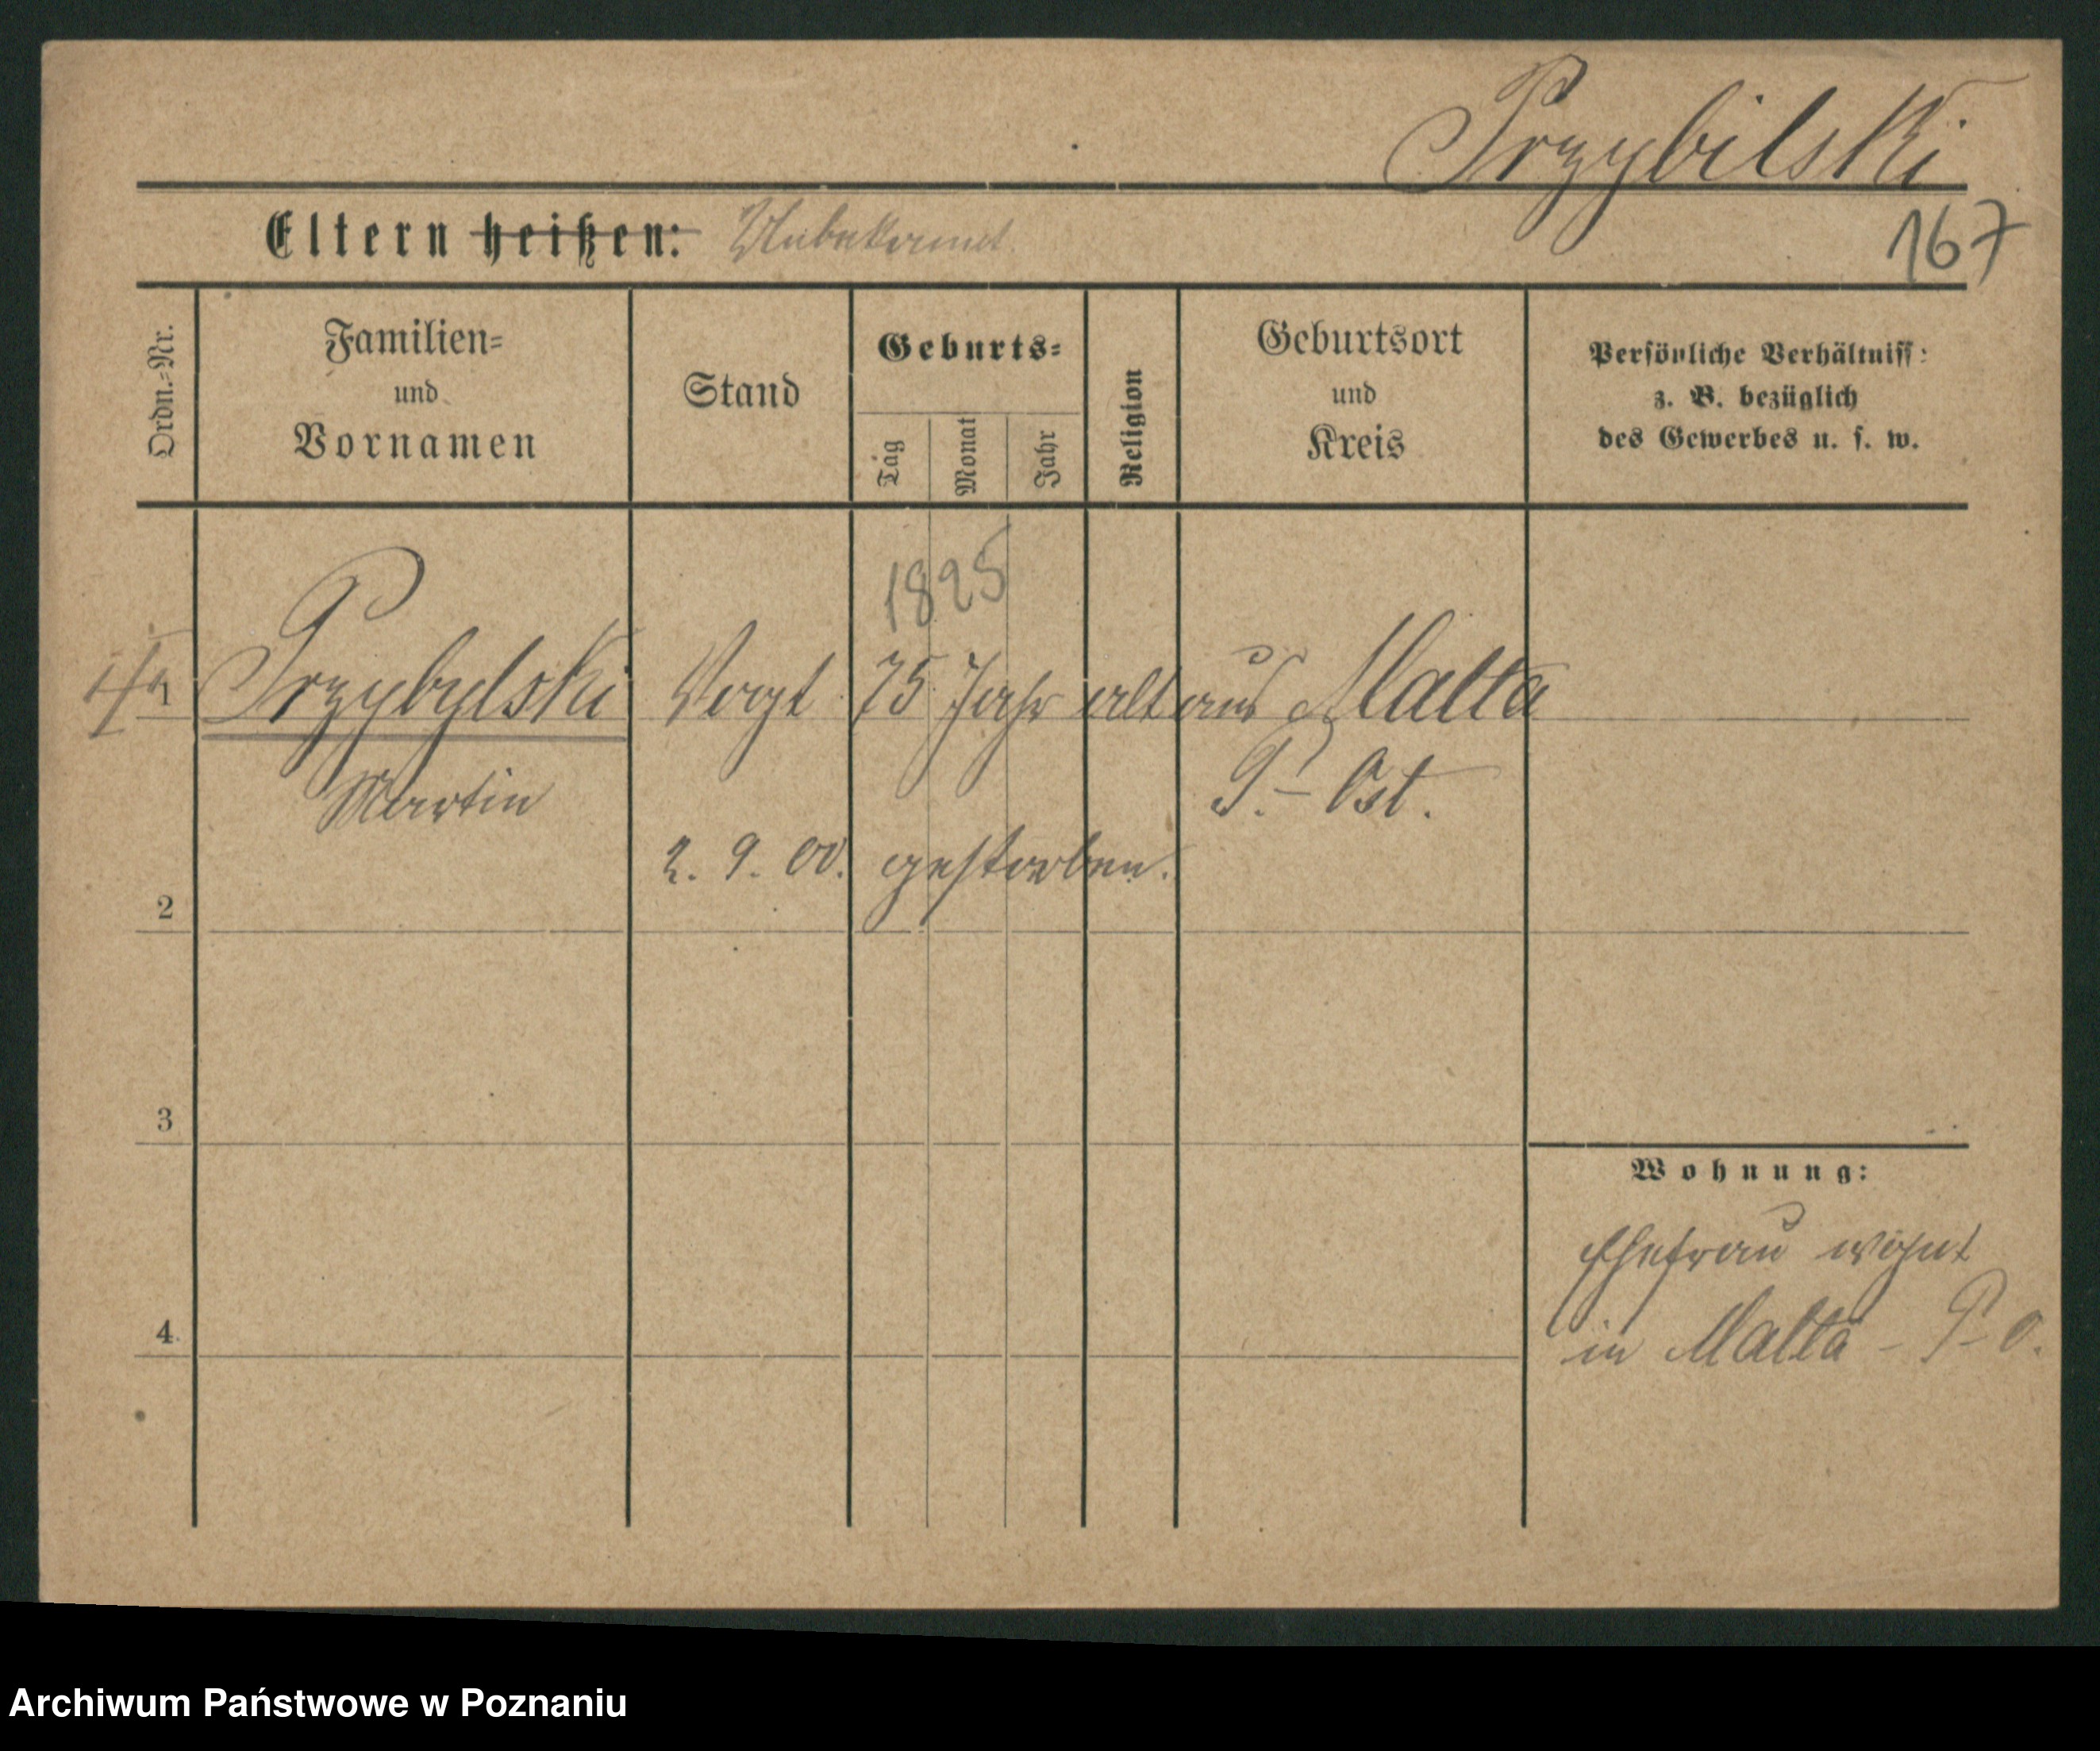 Przybilski
Eltern heißen: Unbekannt.
167
Ordn.-Nr.
Familien-
und
Vornamen
Stand
Geburts-
Tag
Monat
Jahr
Religion
Geburtsort
und
Kreis
Persönliche Verhältniss:
z. B. bezüglich
des Gewerbes u. s. w.
1825
1 Przybylski Vogt 75 Jahr alt aus Malta
Martin P.-Ost.
2. 9. 00. gestorben.
2
3
Wohnung:
Ehefrau wohnt
4 in Malta - P-O.
Archiwum Państwowe w Poznaniu